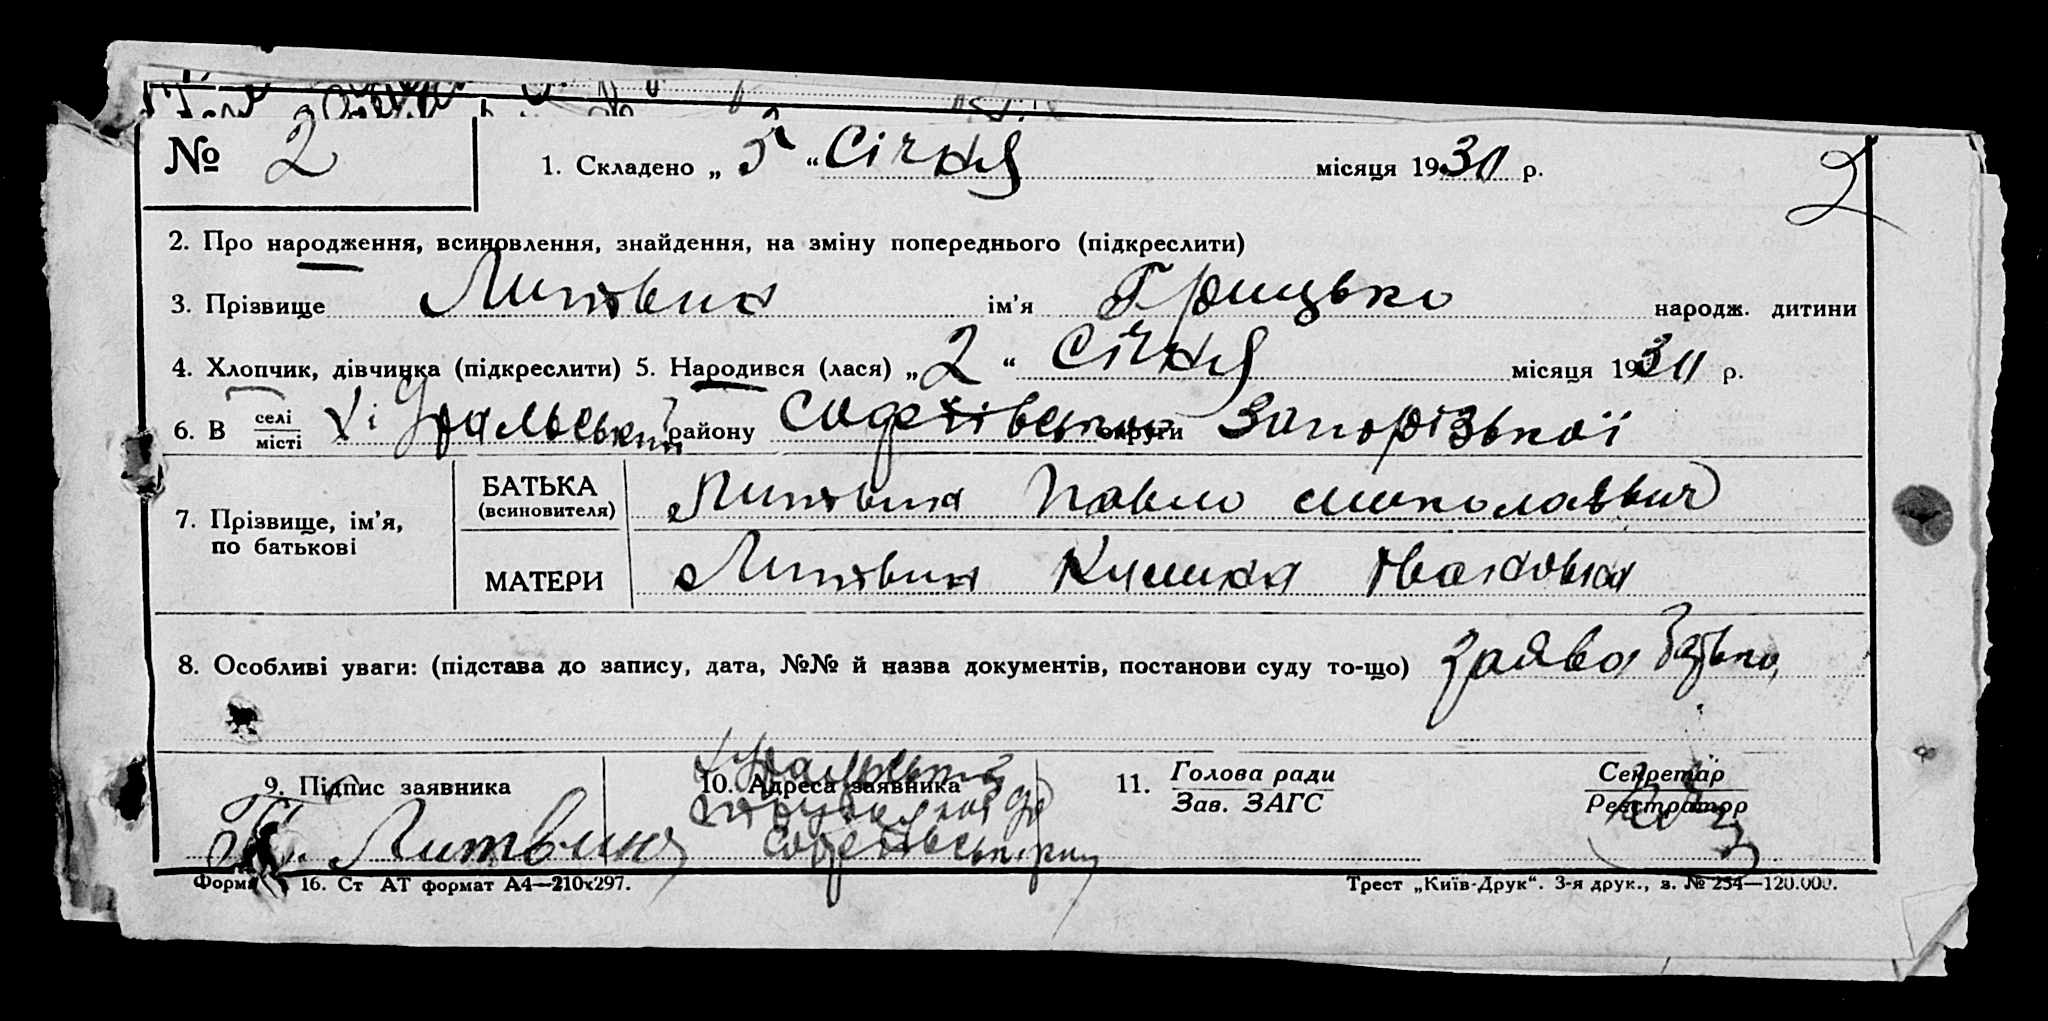 № 2 1. Складено „ 5 “ Січня місяця 1930 р. 2
2. Про народження, всиновлення, знайдення, на зміну попереднього (підкреслити)
3. Прізвище Литвин ім'я Грицько народж. дитини
4. Хлопчик, дівчинка (підкреслити) 5. Народився (лася) „ 2 “ Січня місяця 1930 р.
6. В селі місті х. Уральський району Софіївського округи Запорізької
7. Прізвище, ім'я, по батькові
БАТЬКА (всиновителя) Литвин Павло Миколаєвич
МАТЕРИ Литвин Ивановна
8. Особливі уваги: (підстава до запису, дата, №№ й назва документів, постанови суду то-що) заява батька
9. Підпис заявника 10. Адреса заявника 11. Голова ради Зав. ЗАГС Секретар Реєстратор
П. Литвин
Форма 16. Ст АТ формат А4—210х297. Трест „Київ-Друк“. 3-я друк., з. № 254—120.000.